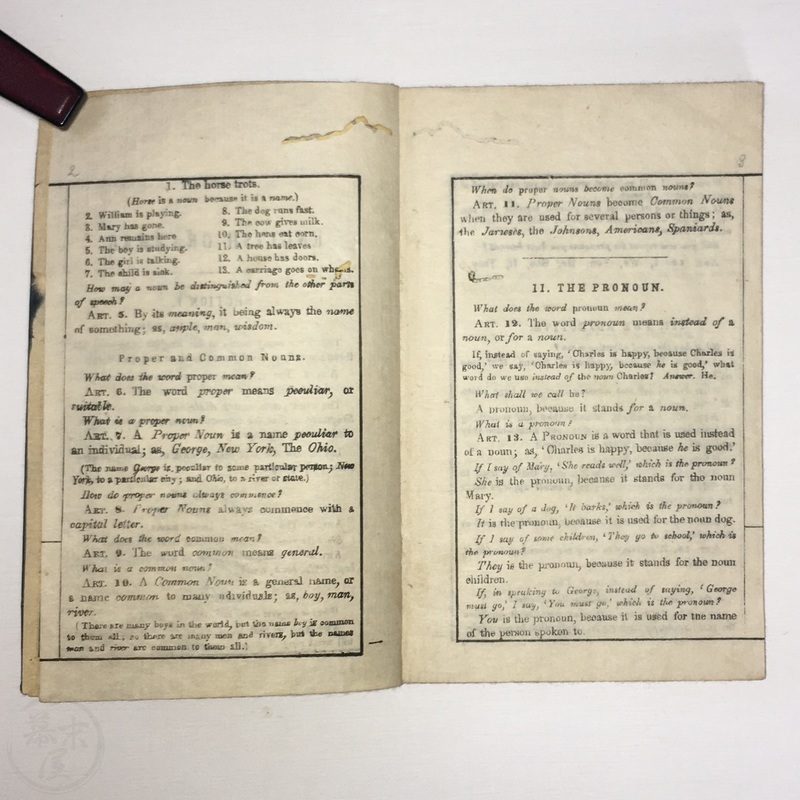 2
1. The horse trots.
(Horse is a noun because it is a name.)
2. William is playing.
3. Mary has gone.
4. Ann remains here
5. The boy is studying.
6. The girl is talking.
7. The child is sick.
8. The dog runs fast.
9. The cow gives milk.
10. The hens eat corn.
11. A tree has leaves
12. A house has doors.
13. A carriage goes on wheels.
How may a noun be distinguished from the other parts
of speech?
ART. 5. By its meaning, it being always the name
of something; as, apple, man, wisdom.
Proper and Common Nouns.
What does the word proper mean?
ART. 6. The word proper means peculiar, or
suitable.
What is a proper noun?
ART. 7. A Proper Noun is a name peculiar to
an individual; as, George, New York, The Ohio.
(The name George is peculiar to some particular person; New
York, to a particular city; and Ohio, to a river or state.)
How do proper nouns always commence?
ART. 8. Proper Nouns always commence with a
capital letter.
What does the word common mean?
ART. 9. The word common means general.
What is a common noun?
ART. 10. A Common Noun is a general name, or
a name common to many individuals; as, boy, man,
river.
(There are many boys in the world, but the name boy is common
to them all; so there are many men and rivers, but the names
man and river are common to them all.)
3
When do proper nouns become common nouns?
ART. 11. Proper Nouns become Common Nouns
when they are used for several persons or things; as,
the Jameses, the Johnsons, Americans, Spaniards.
II. THE PRONOUN.
What does the word pronoun mean?
ART. 12. The word pronoun means instead of a
noun, or for a noun.
If, instead of saying, 'Charles is happy, because Charles is
good,' we say, 'Charles is happy, because he is good,' what
word do we use instead of the noun Charles? Answer. He.
What shall we call he?
A pronoun, because it stands for a noun.
What is a pronoun?
ART. 13. A PRONOUN is a word that is used instead
of a noun; as, 'Charles is happy, because he is good.'
If I say of Mary, 'She reads well,' which is the pronoun?
She is the pronoun, because it stands for the noun
Mary.
If I say of a dog, 'It barks,' which is the pronoun?
It is the pronoun, because it is used for the noun dog.
If I say of some children, 'They go to school,' which is
the pronoun?
They is the pronoun, because it stands for the noun
children.
If, in speaking to George, instead of saying, 'George
must go,' I say, 'You must go,' which is the pronoun?
You is the pronoun, because it is used for the name
of the person spoken to.
幕末屋